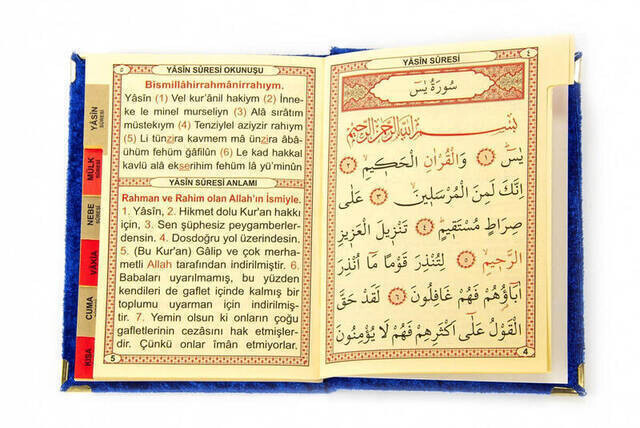 ٥
YÂSİN SÛRESİ OKUNUŞU
Bismillâhirrahmânirrahıym.
Yâsîn (1) Vel kur'ânil hakiym (2) İnne-
ke le minel murseliyn (3) Alâ sırâtım
müstekıym (4) Tenziylel aziyzir rahıym
(5) Li tünzira kavmem mâ ünzira âbâ-
ühüm fehüm ğâfilûn (6) Le kad hakkal
kavlü alâ ekserihim fehüm lâ yü'minûn
YÂSİN SÛRESİ ANLAMI
Rahman ve Rahim olan Allah'ın İsmiyle.
1. Yâsîn, 2. Hikmet dolu Kur'an hakkı
için, 3. Sen şüphesiz peygamberler-
densin. 4. Dosdoğru yol üzerindesin.
5. (Bu Kur'an) Gâlip ve çok merha-
metli Allah tarafından indirilmiştir. 6.
Babaları uyarılmamış, bu yüzden
kendileri de gaflet içinde kalmış bir
toplumu uyarman için indirilmiş-
tir. 7. Yemin olsun ki onların çoğu
gafletlerinin cezasını hak etmişler-
dir. Çünkü onlar îman etmiyorlar.
5
YÂSİN SÛRESİ
MÜLK SÛRESİ
NEBE SÛRESİ
VÂKIA
CUMA
KISA
YÂSİN SÛRESİ
٤
سُورَةُ يٰسٓ
بِسْمِ اللّٰهِ الرَّحْمٰنِ الرَّحِيمِ
يٰسٓ ﴿١﴾ وَالْقُرْاٰنِ الْحَكِيمِ ﴿٢﴾
اِنَّكَ لَمِنَ الْمُرْسَلِينَ ﴿٣﴾ عَلٰى
صِرَاطٍ مُسْتَقِيمٍ ﴿٤﴾ تَنْزِيلَ الْعَزِيزِ
الرَّحِيمِ ﴿٥﴾ لِتُنْذِرَ قَوْمًا مَٓا اُنْذِرَ
اٰبَٓاؤُهُمْ فَهُمْ غَافِلُونَ ﴿٦﴾ لَقَدْ حَقَّ
الْقَوْلُ عَلٰٓى اَكْثَرِهِمْ فَهُمْ لَا يُؤْمِنُونَ
4